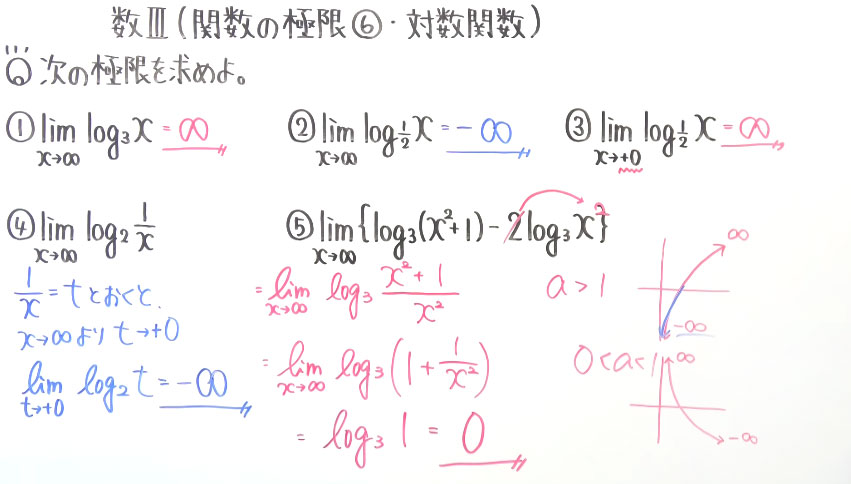 数Ⅲ(関数の極限⑥・対数関数)
次の極限を求めよ。
① lim x→∞ log₃x = ∞
② lim x→∞ log½x = -∞
③ lim x→+0 log½x = ∞
④ lim x→∞ log₂ 1/x
1/x = t とおくと、
x→∞より t→+0
lim t→+0 log₂t = -∞
⑤ lim x→∞ {log₃(x²+1) - 2log₃x²}
= lim x→∞ log₃ (x²+1)/x²
= lim x→∞ log₃(1 + 1/x²)
= log₃1 = 0
a > 1
∞
-∞
0<a<1
∞
-∞